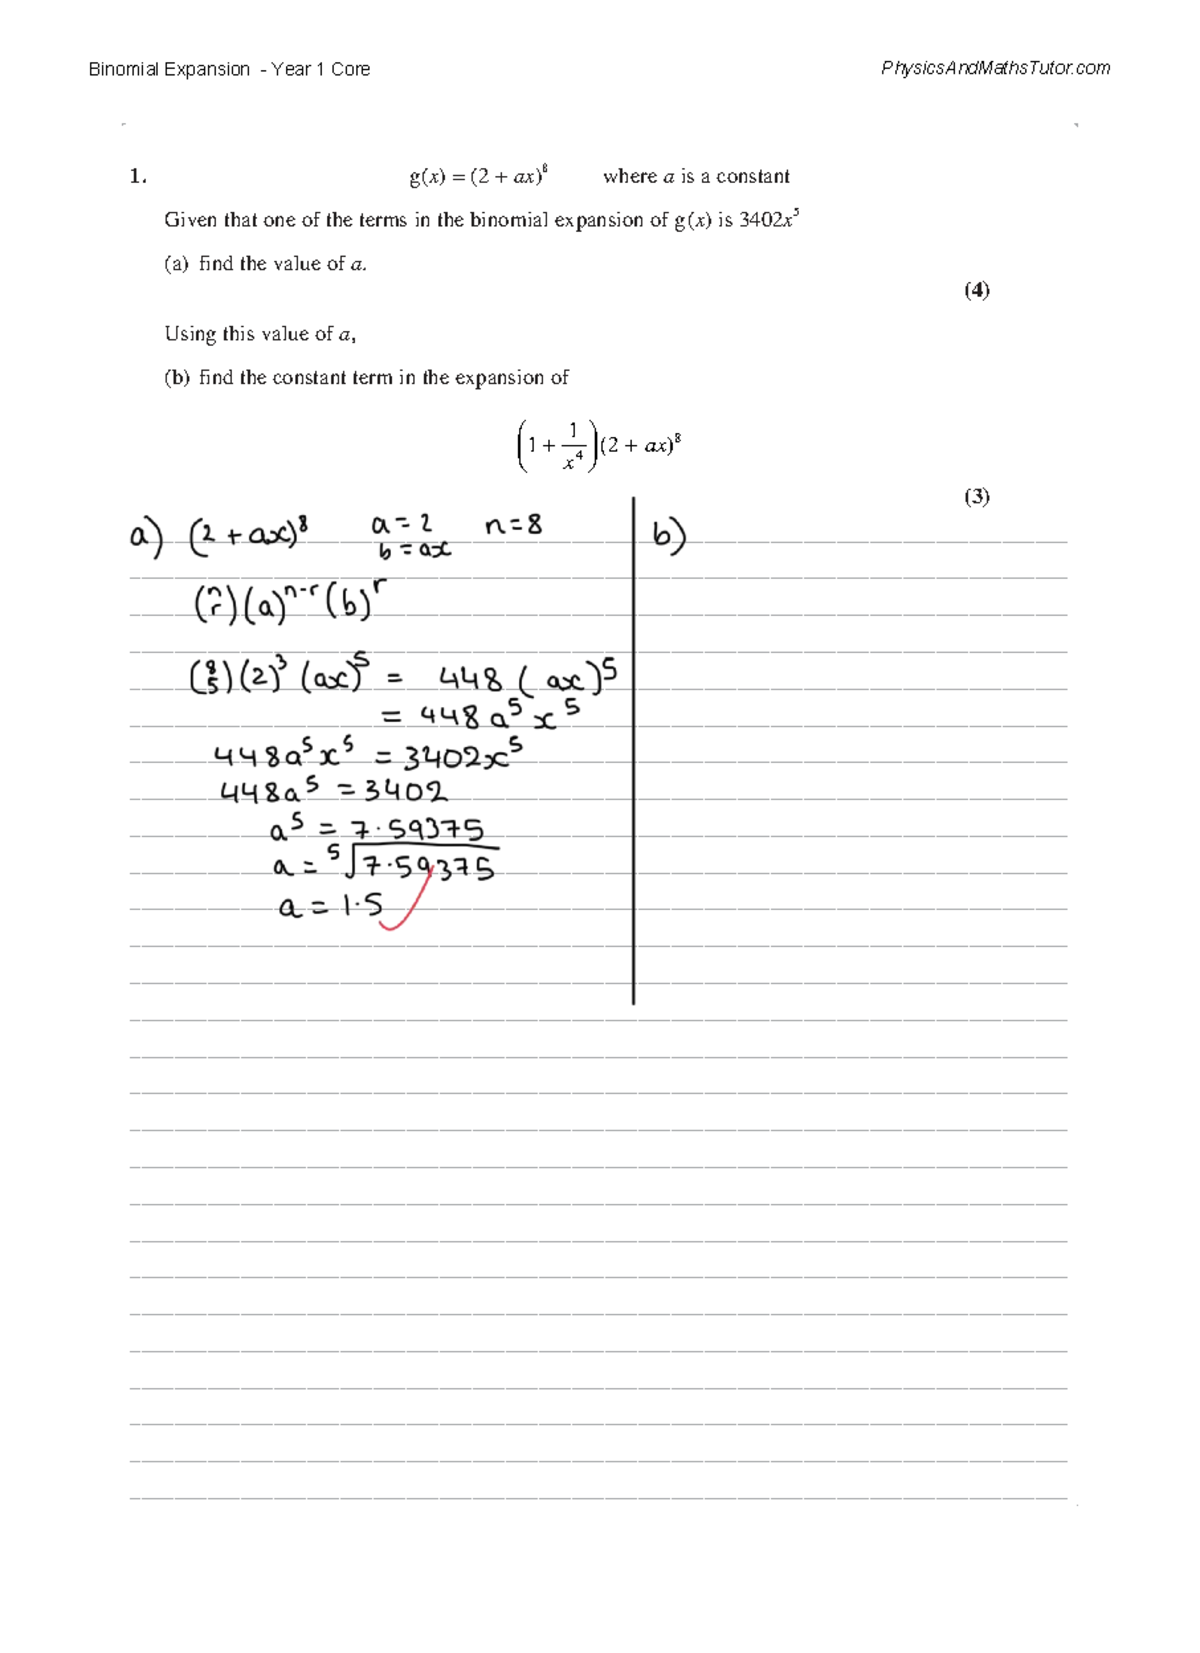 Binomial Expansion - Year 1 Core
PhysicsAndMathsTutor.com
1. g(x) = (2 + ax)⁸ where a is a constant
Given that one of the terms in the binomial expansion of g(x) is 3402x⁵
(a) find the value of a.
(4)
Using this value of a,
(b) find the constant term in the expansion of
(1 + 1/x⁴)(2 + ax)⁸
(3)
a) (2 + ax)⁸ a = 2 n = 8
b = ax
(n r)(a)ⁿ⁻ʳ(b)ʳ
(8 5)(2)³(ax)⁵ = 448(ax)⁵
= 448a⁵x⁵
448a⁵x⁵ = 3402x⁵
448a⁵ = 3402
a⁵ = 7.59375
a = ⁵√7.59375
a = 1.5
b)